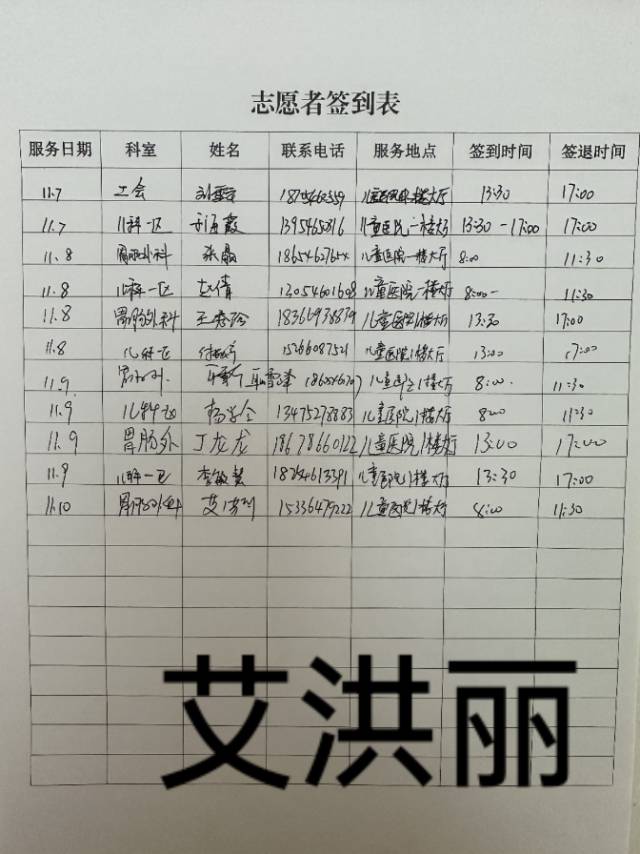 志愿者签到表
服务日期 科室 姓名 联系电话 服务地点 签到时间 签退时间
11.7 工会 儿童医院1楼大厅 13:30 17:00
11.7 儿科一区 儿童医院一楼大厅 13:30-17:00 17:00
11.8 胃肠外科 张 儿童医院一楼大厅 8:00 11:30
11.8 儿科一区 赵倩 13054601608 儿童医院一楼大厅 8:00- 11:30
11.8 胃肠外科 儿童医院1楼大厅 13:30 17:00
11.8 儿科一区 15266087521 儿童医院1楼大厅 13:00 17:00
11.9 儿童医院1楼大厅 8:00 11:30
11.9 儿科一区 13475278883 儿童医院1楼大厅 8:00 11:30
11.9 胃肠外 丁龙龙 18678660122 儿童医院1楼大厅 13:00 17:00
11.9 儿科一区 李敏慧 18254613391 儿童医院1楼大厅 13:30 17:00
11.10 胃肠外科 艾洪丽 15336479222 儿童医院1楼大厅 8:00 11:30
艾洪丽